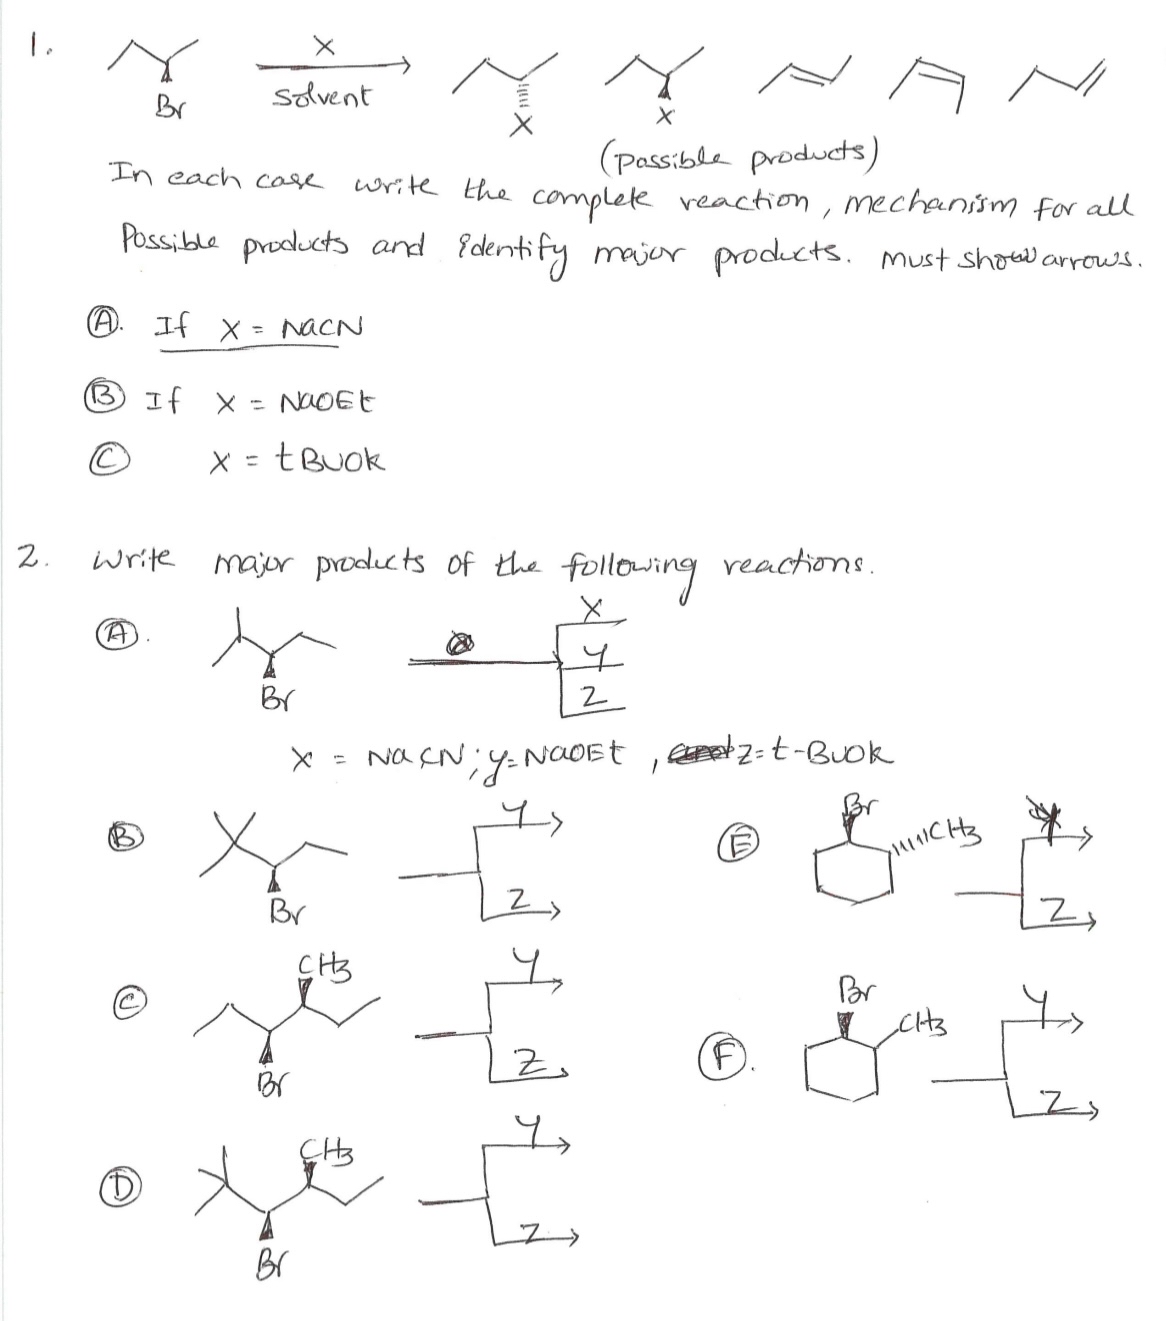 1.
X
Br
Solvent
X
X
(possible products)
In each case write the complete reaction, mechanism for all
Possible products and identify major products. must show arrows.
A. If X = NaCN
B If X = NaOEt
C X = tBuOK
2. write major products of the following reactions.
A.
X
y
Z
Br
X = NaCN; y=NaOEt, Z=t-BuOK
B
Br
y
Z
E
Br
CH3
Z
C
CH3
Br
y
Z
F.
Br
CH3
y
Z
D
CH3
Br
y
Z